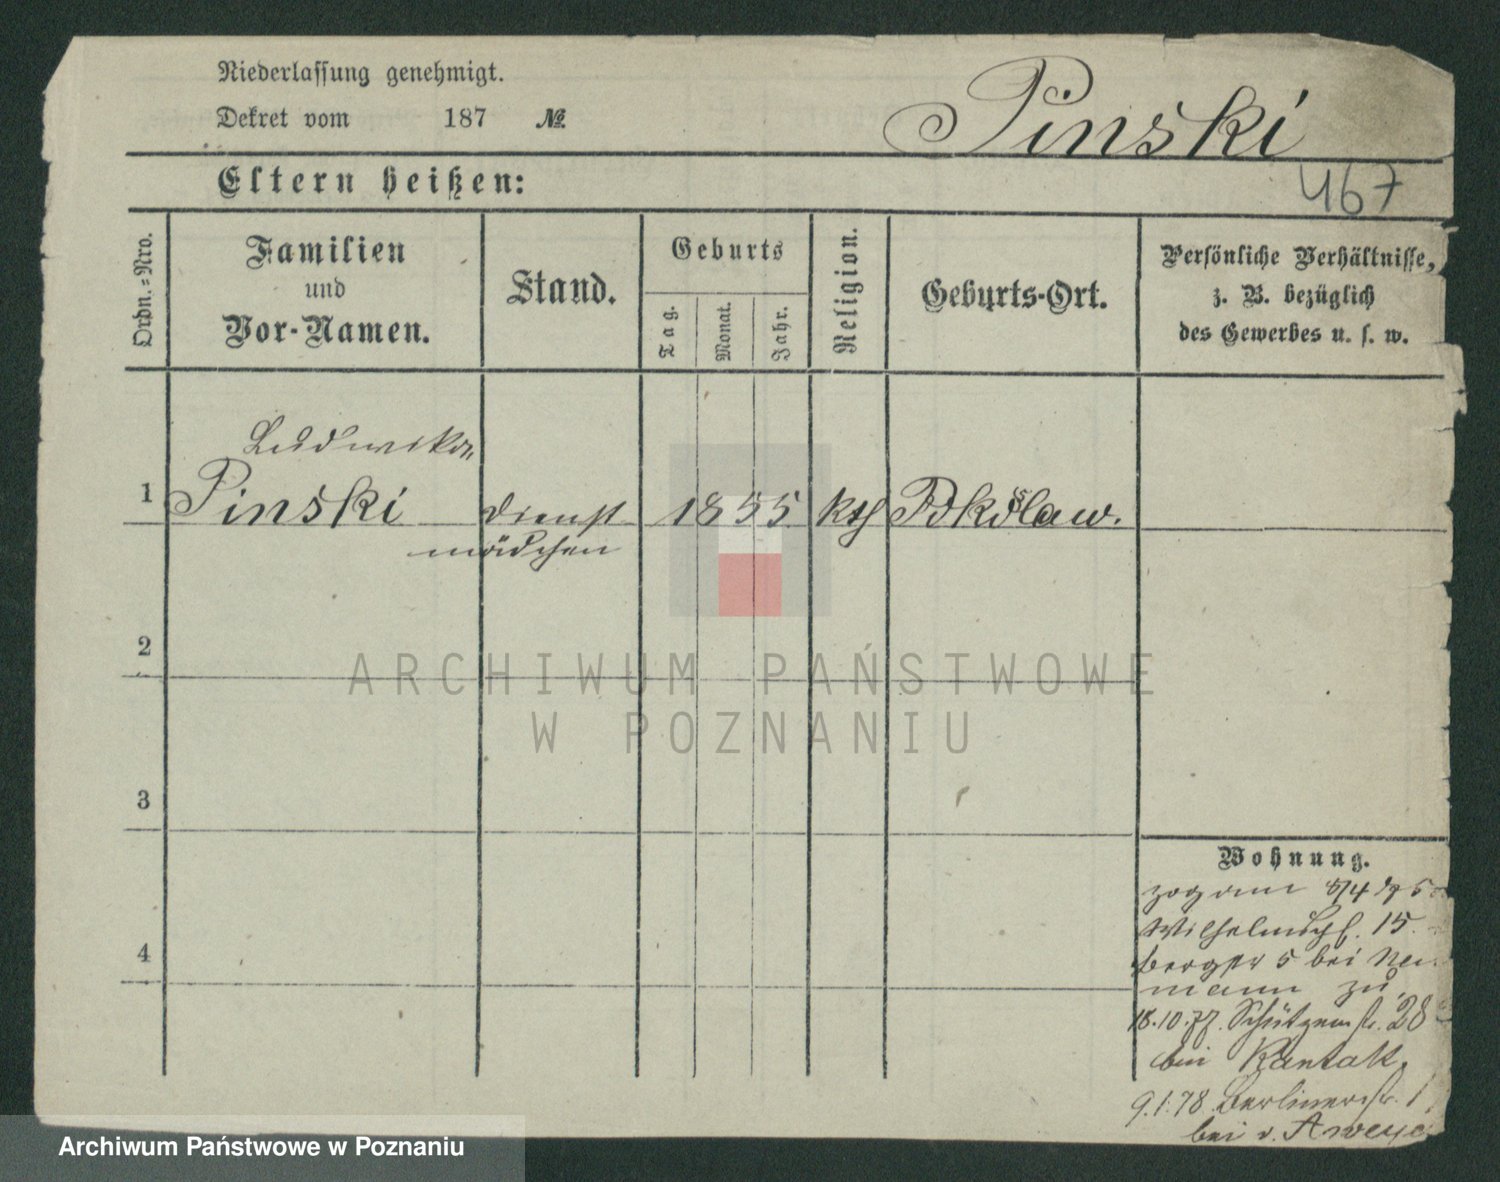 Niederlassung genehmigt.
Dekret vom 187 №
Pinski
Eltern heißen:
467
Ordn.=Nro.
Familien
und
Vor-Namen.
Stand.
Geburts
Tag.
Monat.
Jahr.
Religion.
Geburts-Ort.
Persönliche Verhältnisse,
z. B. bezüglich
des Gewerbes u. s. w.
Ludwika
1 Pinski Dienst 1855 kth
mädchen
2
ARCHIWUM PAŃSTWOWE
W POZNANIU
3
4
Wohnung.
zog am 8/4
15
Bergstr 5 bei Neu
mann zu.
18.10.77. Schützenstr. 28
bei Kantak.
9.1.78 Berlinerstr. 1
bei v.
Archiwum Państwowe w Poznaniu